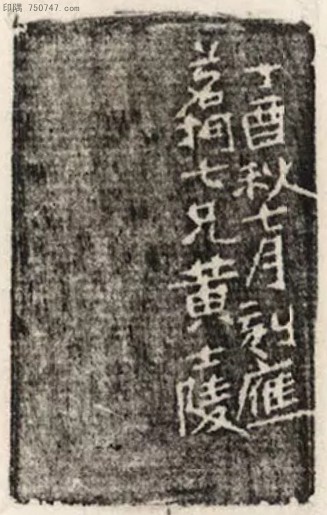 印隅 750747.com
丁酉秋七月刻應
茗柯七兄黃士陵